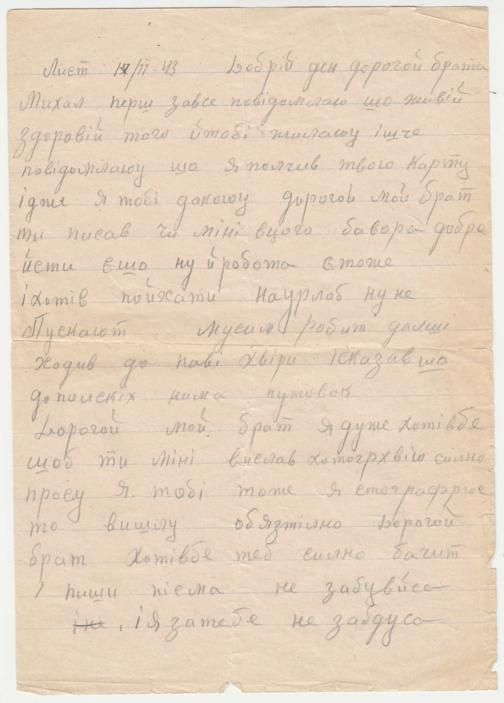 Лист 18/II-43 Добрій ден дорогой брата
Михал перш завсе повідомлаю що живій
здоровій того й тобі жилаюу іще
повідомлаюу що я получив твою карту
ідля я тобі дакоюу дорогой мой брат
ти писав чи міні вцого бавора добре
йсти єщо ну й робота єтоже
і хотів пойхати наурлоб ну не
Пускают мусим робит далши
ходив до паві хвіри ісказав що
дополскіх нима путовок
Дорогой мой брат я дуже хотівбе
щоб ти міні вислав хотогрхвію силно
просу я тобі тоже я
то вишлу обязтілно Дорогой
брат хотівбе теб силно бачит
і пиши писма не забувйса
і я затебе не забдуса